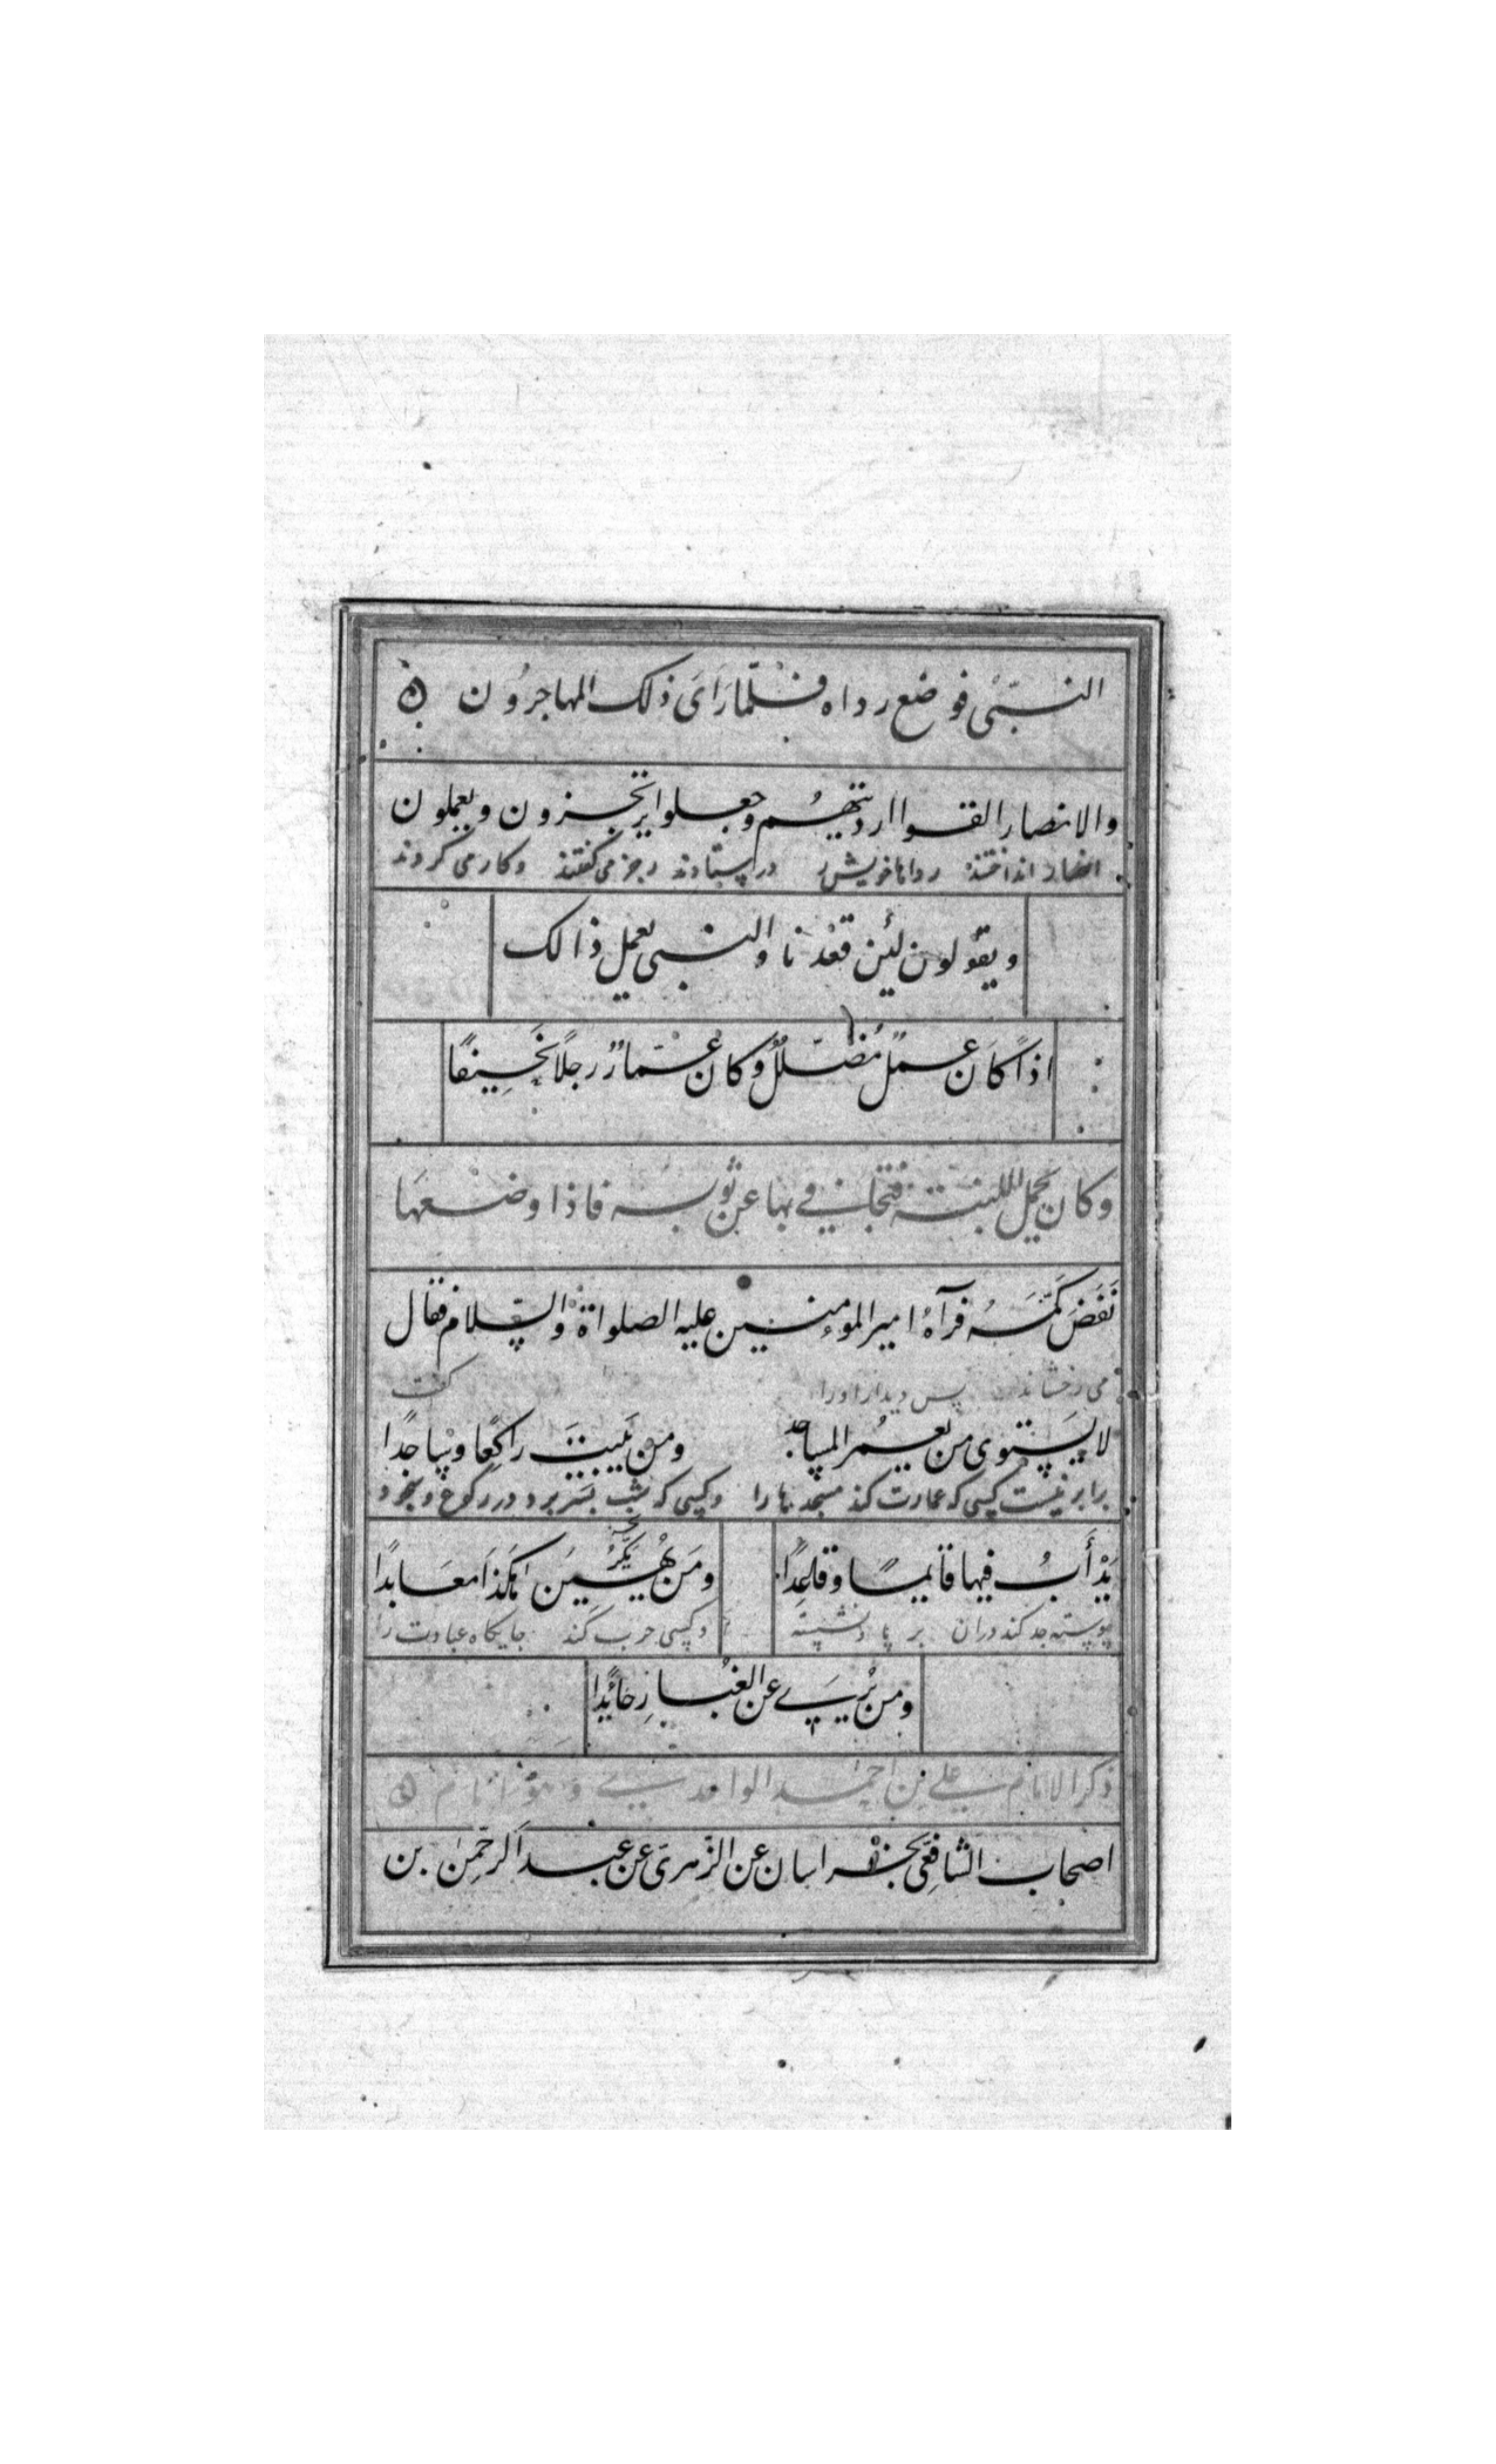 النبّى فوضع رداه فلمّا رَاَىَ ذلك المهاجرُون
والانصار القوا ارديتهُم وجعلوا يرتجزون ويعملون
انصار انداختند رداها خويش را در ايستادند رجز مى گفتند وكار مى كردند
ويقُولون لئِن قعَدنا والنبى يعمل ذالك
اذًا كانَ عملٌ مُضلّلٌ وكان عمّارٌ رجلًا نَحِيفًا
وكان يحمل اللبنة فتجافى بها عن ثوبه فاذا وضعهَا
نَفَضَ كُمَّهُ فرآهُ امير المومنين عليه الصلواة والسّلام فقال
مى رخشاند پس ديدار اورا گفت
لا يَستوى من يعمُر المساجد ومن يَبيتَ راكِعًا وساجدًا
برابر نيست كسى كه عمارت كند مسجد ها را وكسى كه شب بسر برد در ركوع وسجود
يَدْأَبُ فيها قائيمًا وقاعِدًا ومَن يكرّ هكذا معَابدًا
پيوسته جد كند دران بر پا ونشسته وكسى حرب كند جايكاه عبادت را
ومن يُرىَ عن الغُبارِ حائدًا
ذكر الامام على بن احمد الواحدى وهو امام
اصحاب الشافِعى بخراسان عن الزّهرىَ عن عبد الرحّمن بن